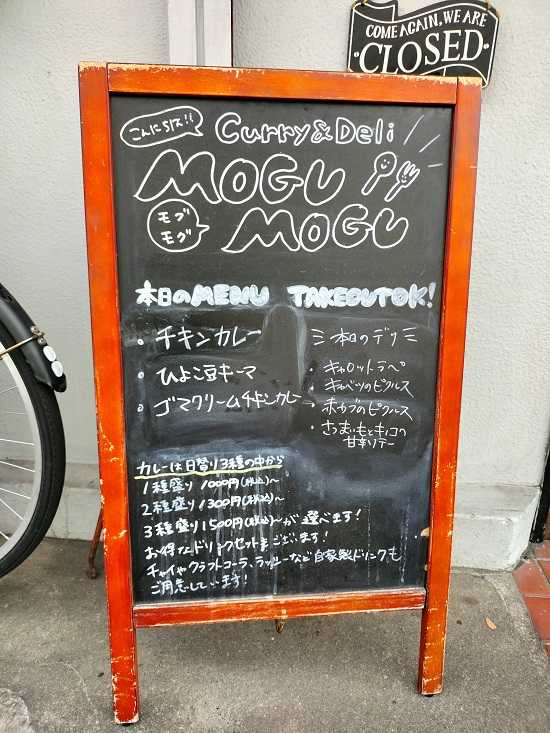 COME AGAIN, WE ARE
CLOSED
こんにちは!!
Curry&Deli
MOGU
モグ
モグ
MOGU
本日のMENU TAKEOUTOK!
・チキンカレー
・ひよこ豆キーマ
・ゴマクリームチキンカレー
本日のデリ
・キャロットラペ
・キャベツのピクルス
・赤カブのピクルス
・さつまいもとキノコの
甘辛ソテー
カレーは日替り3種の中から
1種盛り1000円(税込)〜
2種盛り1300円(税込)〜
3種盛り1500円(税込)〜が選べます!
お得なドリンクセットもございます!
チャイやクラフトコーラ、ラッシーなど自家製ドリンクも
ご用意しています!